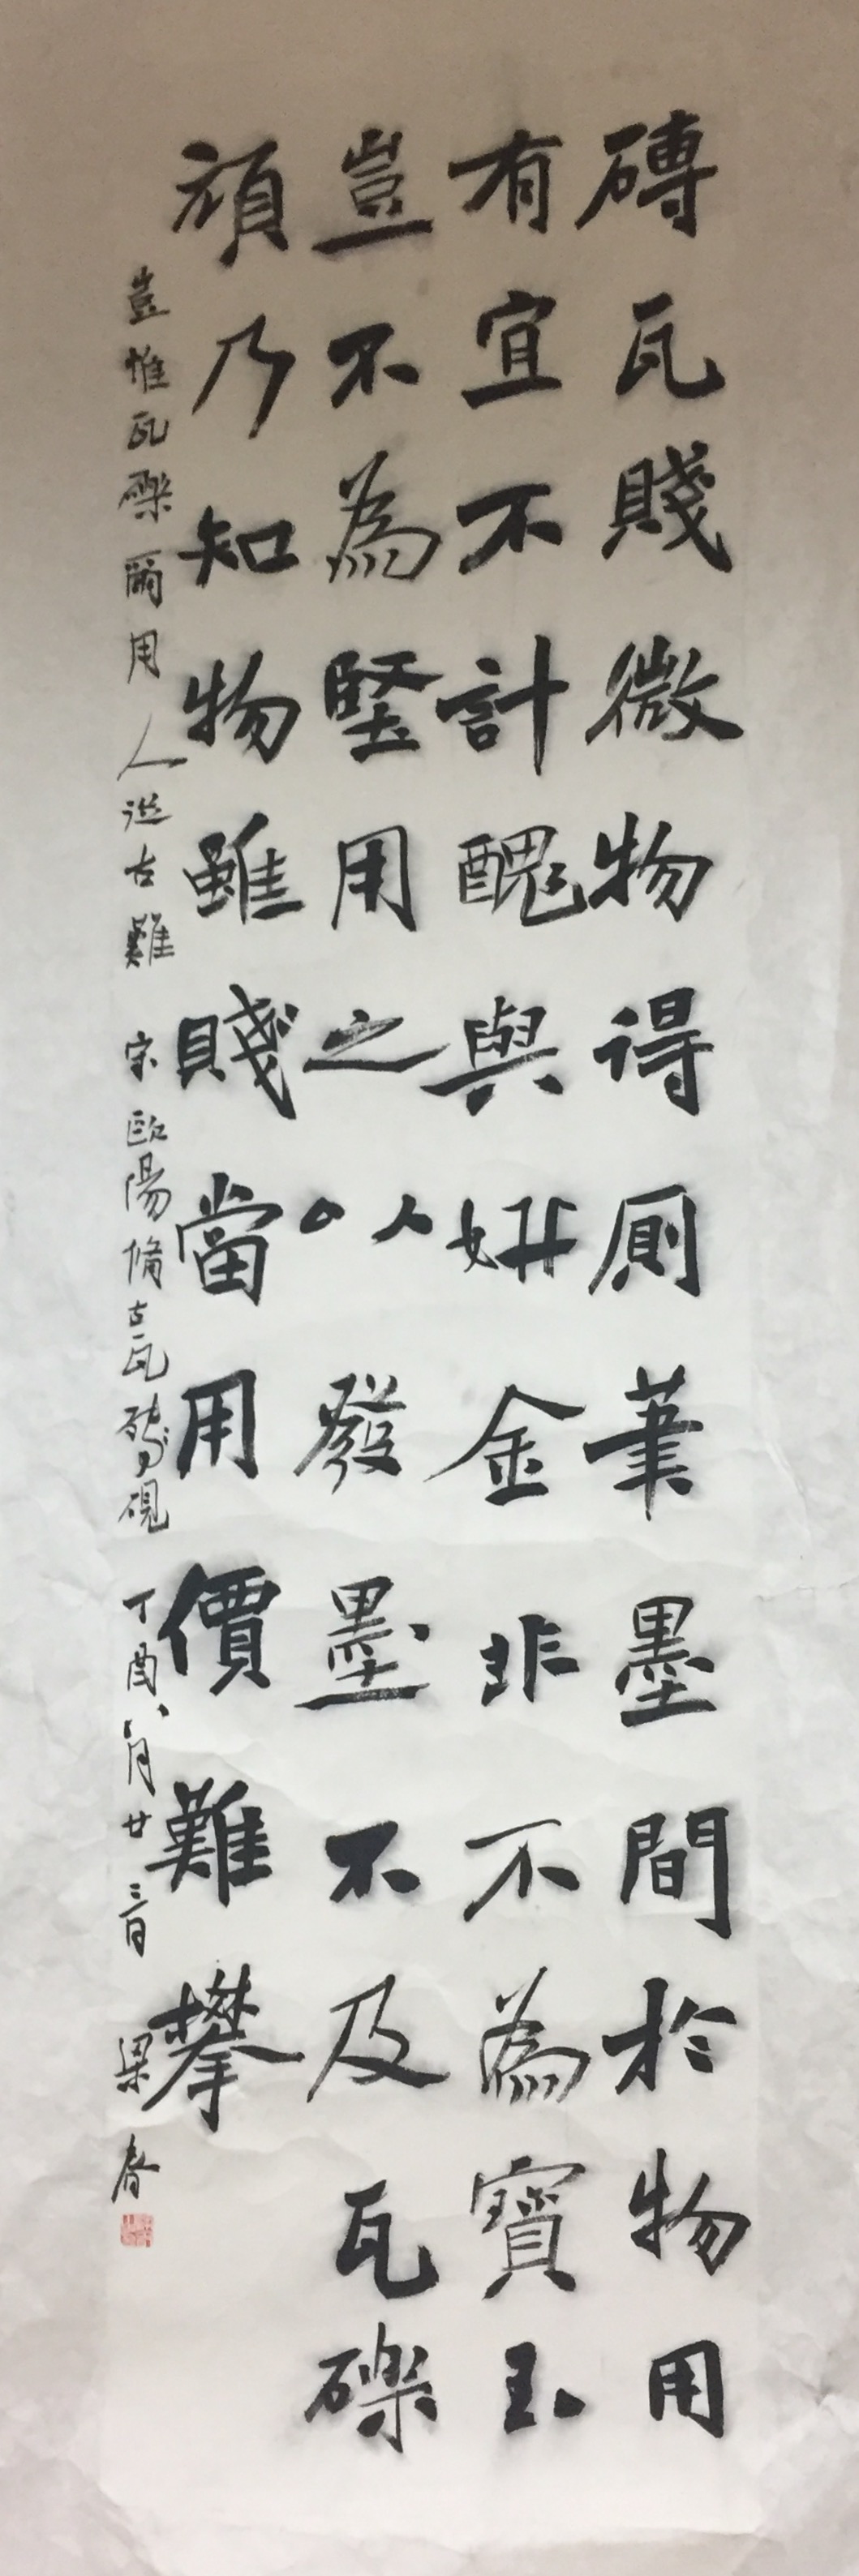 磚瓦賤微物得厠筆墨間於物用
有宜不計醜與妍金非不為寶玉
豈不為堅用之以發墨不及瓦礫
頑乃知物雖賤當用價難攀
豈惟瓦礫爾用人從古難 宋歐陽脩古瓦硯 丁酉八月廿三日 梁春